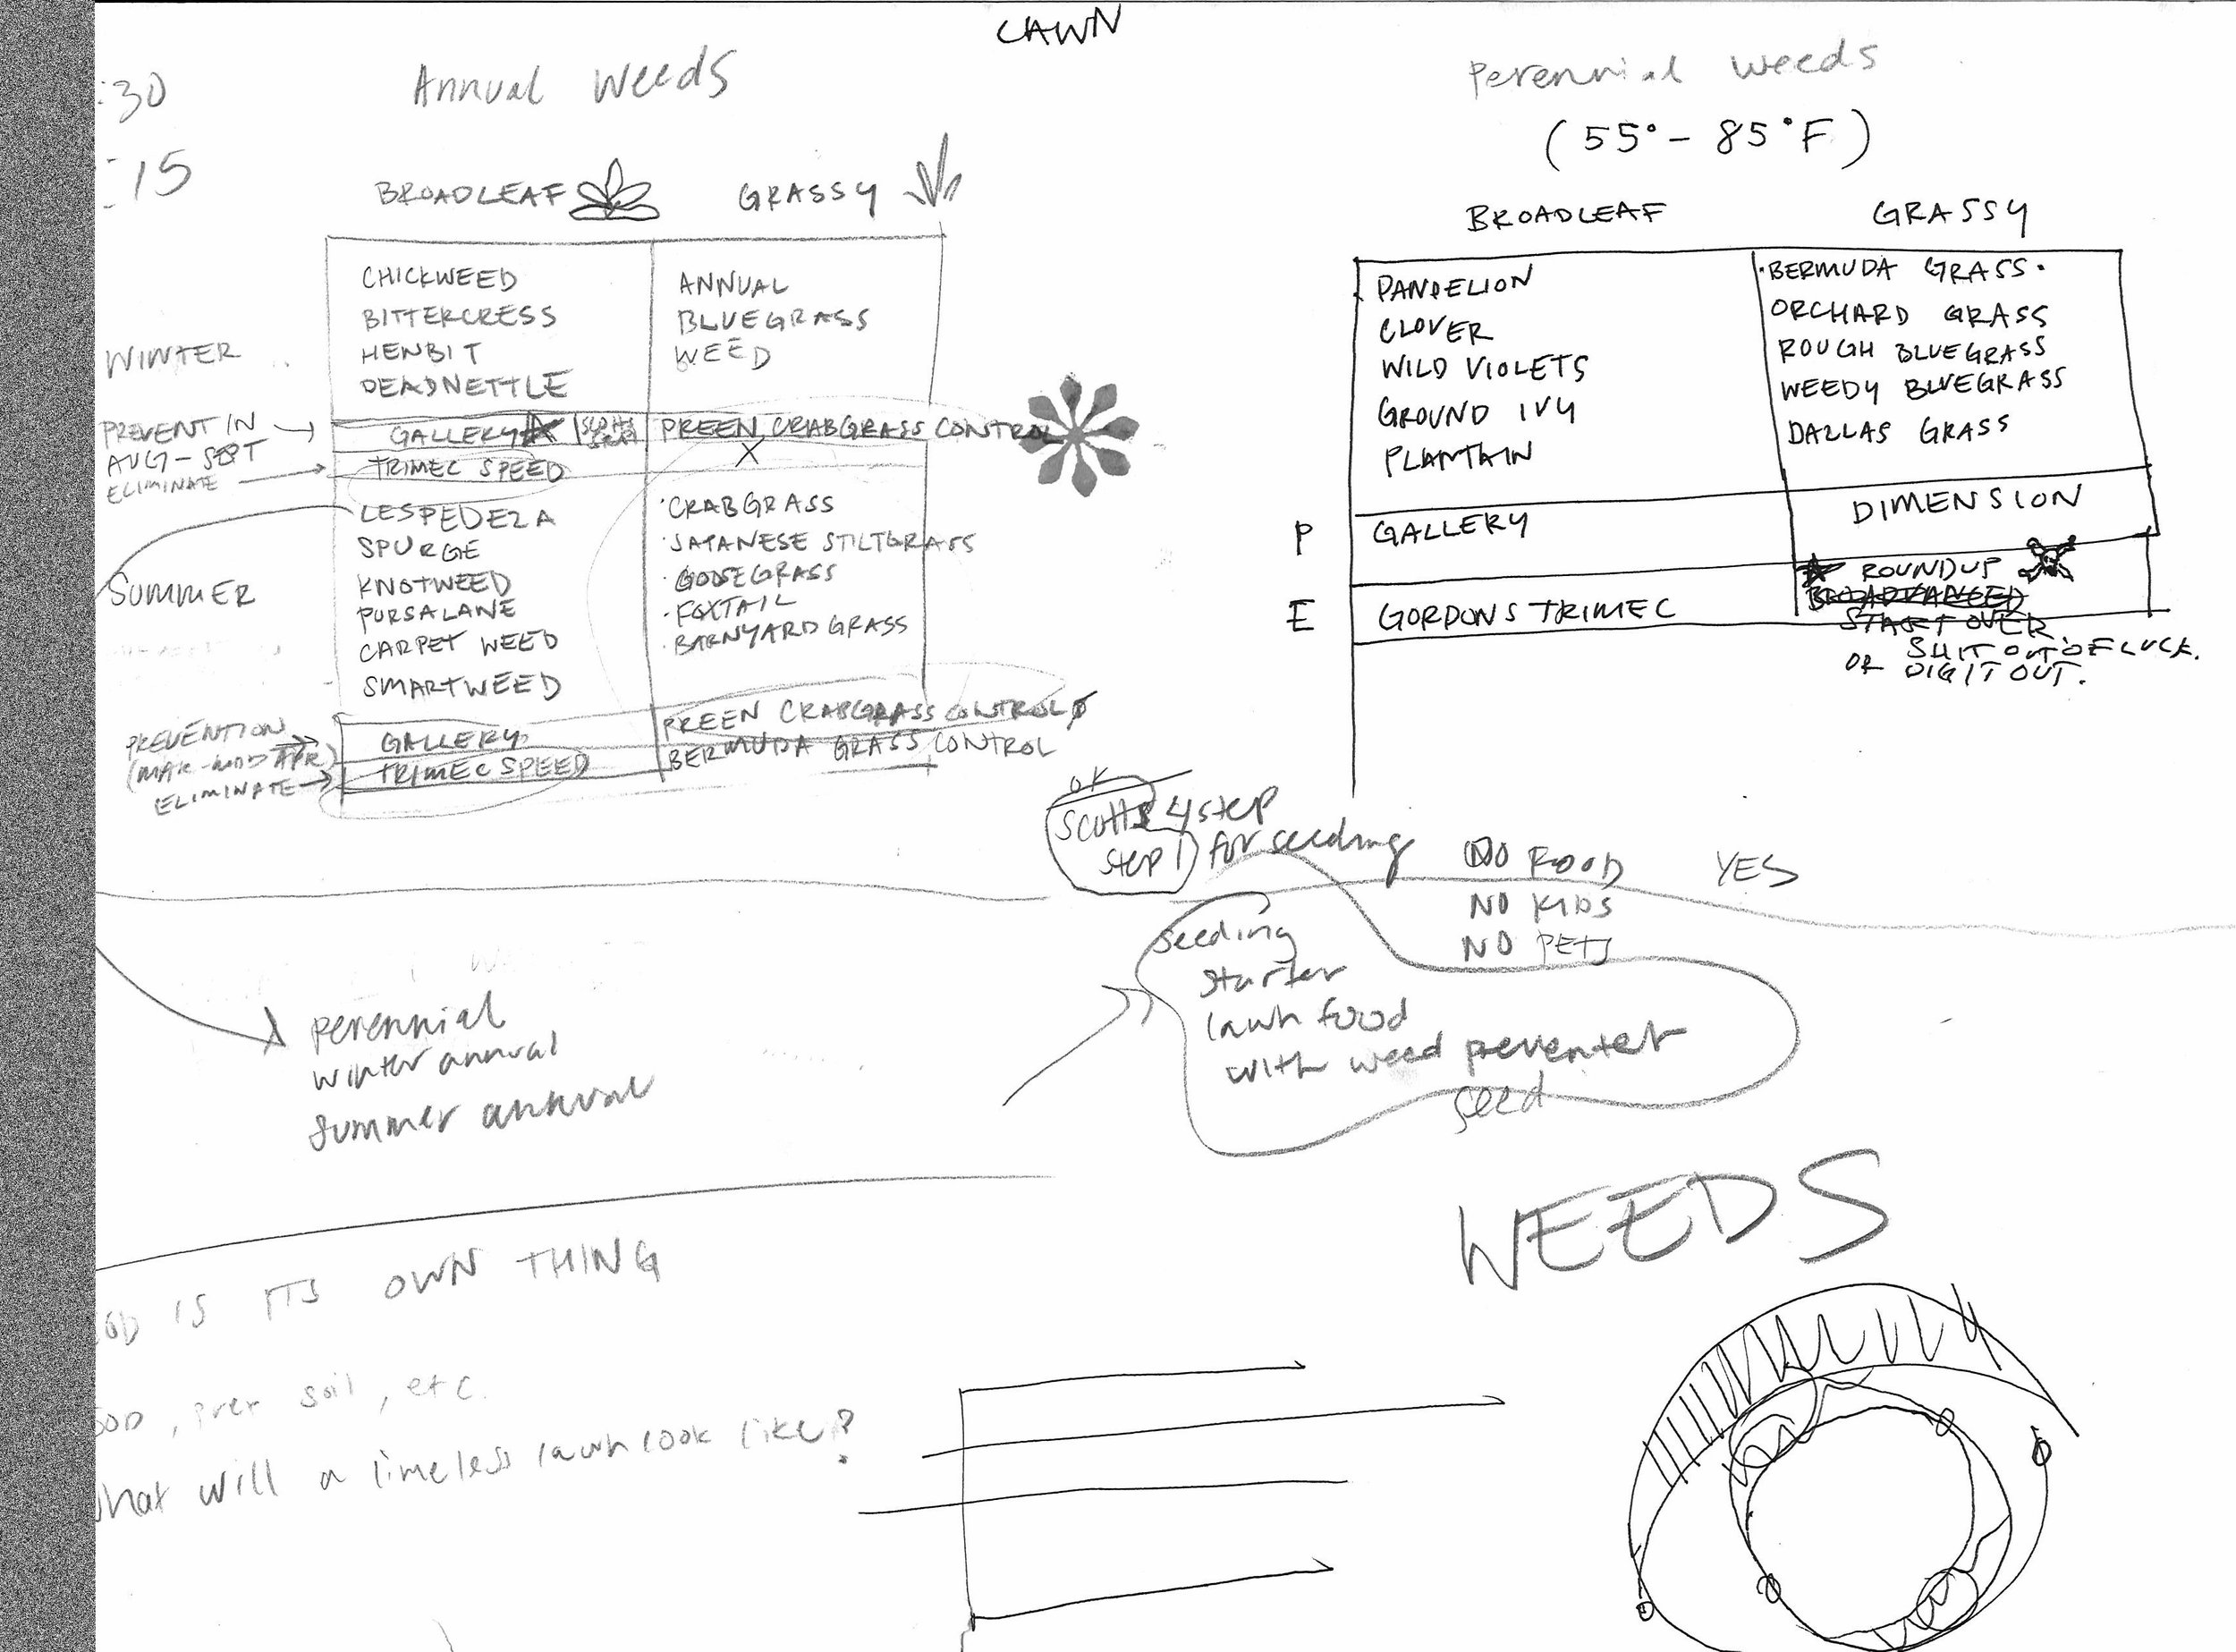 LAWN
:30
:15
Annual Weeds
BROADLEAF GRASSY
WINTER
CHICKWEED
BITTERCRESS
HENBIT
DEADNETTLE
ANNUAL
BLUEGRASS
WEED
PREVENT IN
AUG-SEPT
ELIMINATE
GALLERY
PREEN CRABGRASS CONTROL
TRIMEC SPEED
X
SUMMER
LESPEDEZA
SPURGE
KNOTWEED
PURSALANE
CARPET WEED
SMARTWEED
·CRABGRASS
·JAPANESE STILTGRASS
·GOOSEGRASS
·FOXTAIL
·BARNYARD GRASS
PREVENTION
(MAR-MID APR)
ELIMINATE
GALLERY
PREEN CRABGRASS CONTROL
TRIMEC SPEED
BERMUDA GRASS CONTROL
Perennial weeds
(55°- 85°F)
BROADLEAF GRASSY
DANDELION
CLOVER
WILD VIOLETS
GROUND IVY
PLANTAIN
·BERMUDA GRASS·
ORCHARD GRASS
ROUGH BLUEGRASS
WEEDY BLUEGRASS
DALLAS GRASS
P GALLERY DIMENSION
E GORDONS TRIMEC
ROUNDUP
START OVER
SHIT OUT OF LUCK.
OR DIG IT OUT.
or
Scotts 4 step
step 1 for seeding
NO FOOD YES
NO KIDS
NO PETS
seeding
starter
lawn food
with weed preventer
seed
perennial
winter annual
summer annual
WEEDS
IS ITS OWN THING
SOD, prer soil, etc.
what will a timeless lawn look like?